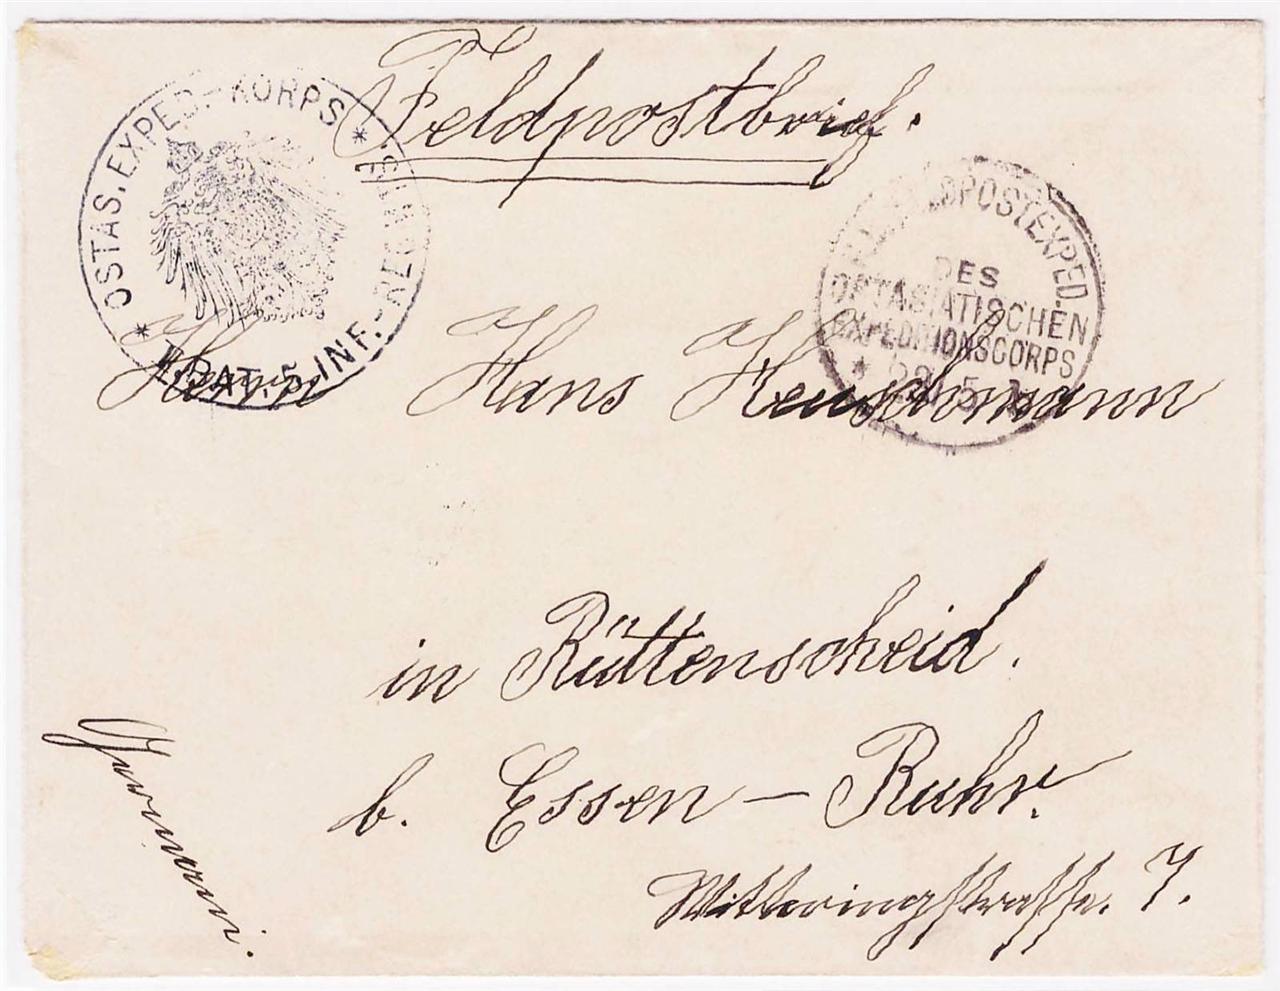 Feldpostbrief.
OSTAS. EXPED.-KORPS * 5. INF.-REG
BAT.
FELDPOSTEXPED.
DES
OSTASIATISCHEN
EXPEDITIONSCORPS
* 22 5
Herrn Hans Heuschmann
in Rüttenscheid.
b. Essen - Ruhr.
Witteringstrasse. 7.
Germani.